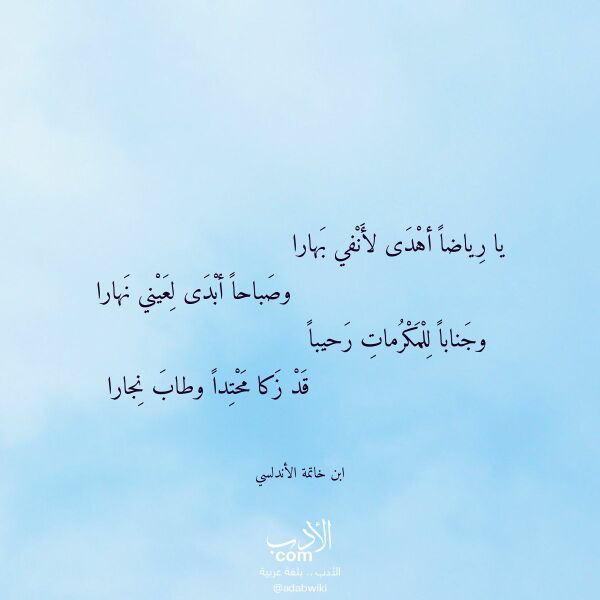 يا رِياضاً أهْدَى لأَنْفي بَهارا
وصَباحاً أبْدَى لِعَيْني نَهارا
وجَناباً لِلْمَكْرُماتِ رَحيباً
قَدْ زَكا مَحْتِداً وطابَ نِجارا
ابن خاتمة الأندلسي
الأدب
com
الأدب .. بلغة عربية
@adabwiki